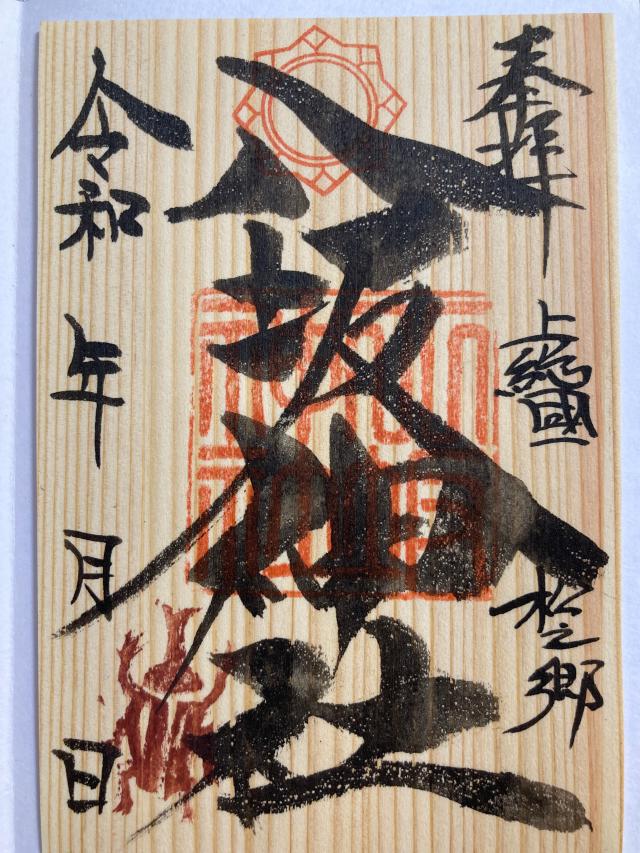 奉拝
上総國
松之郷
八坂神社
令和 年 月 日